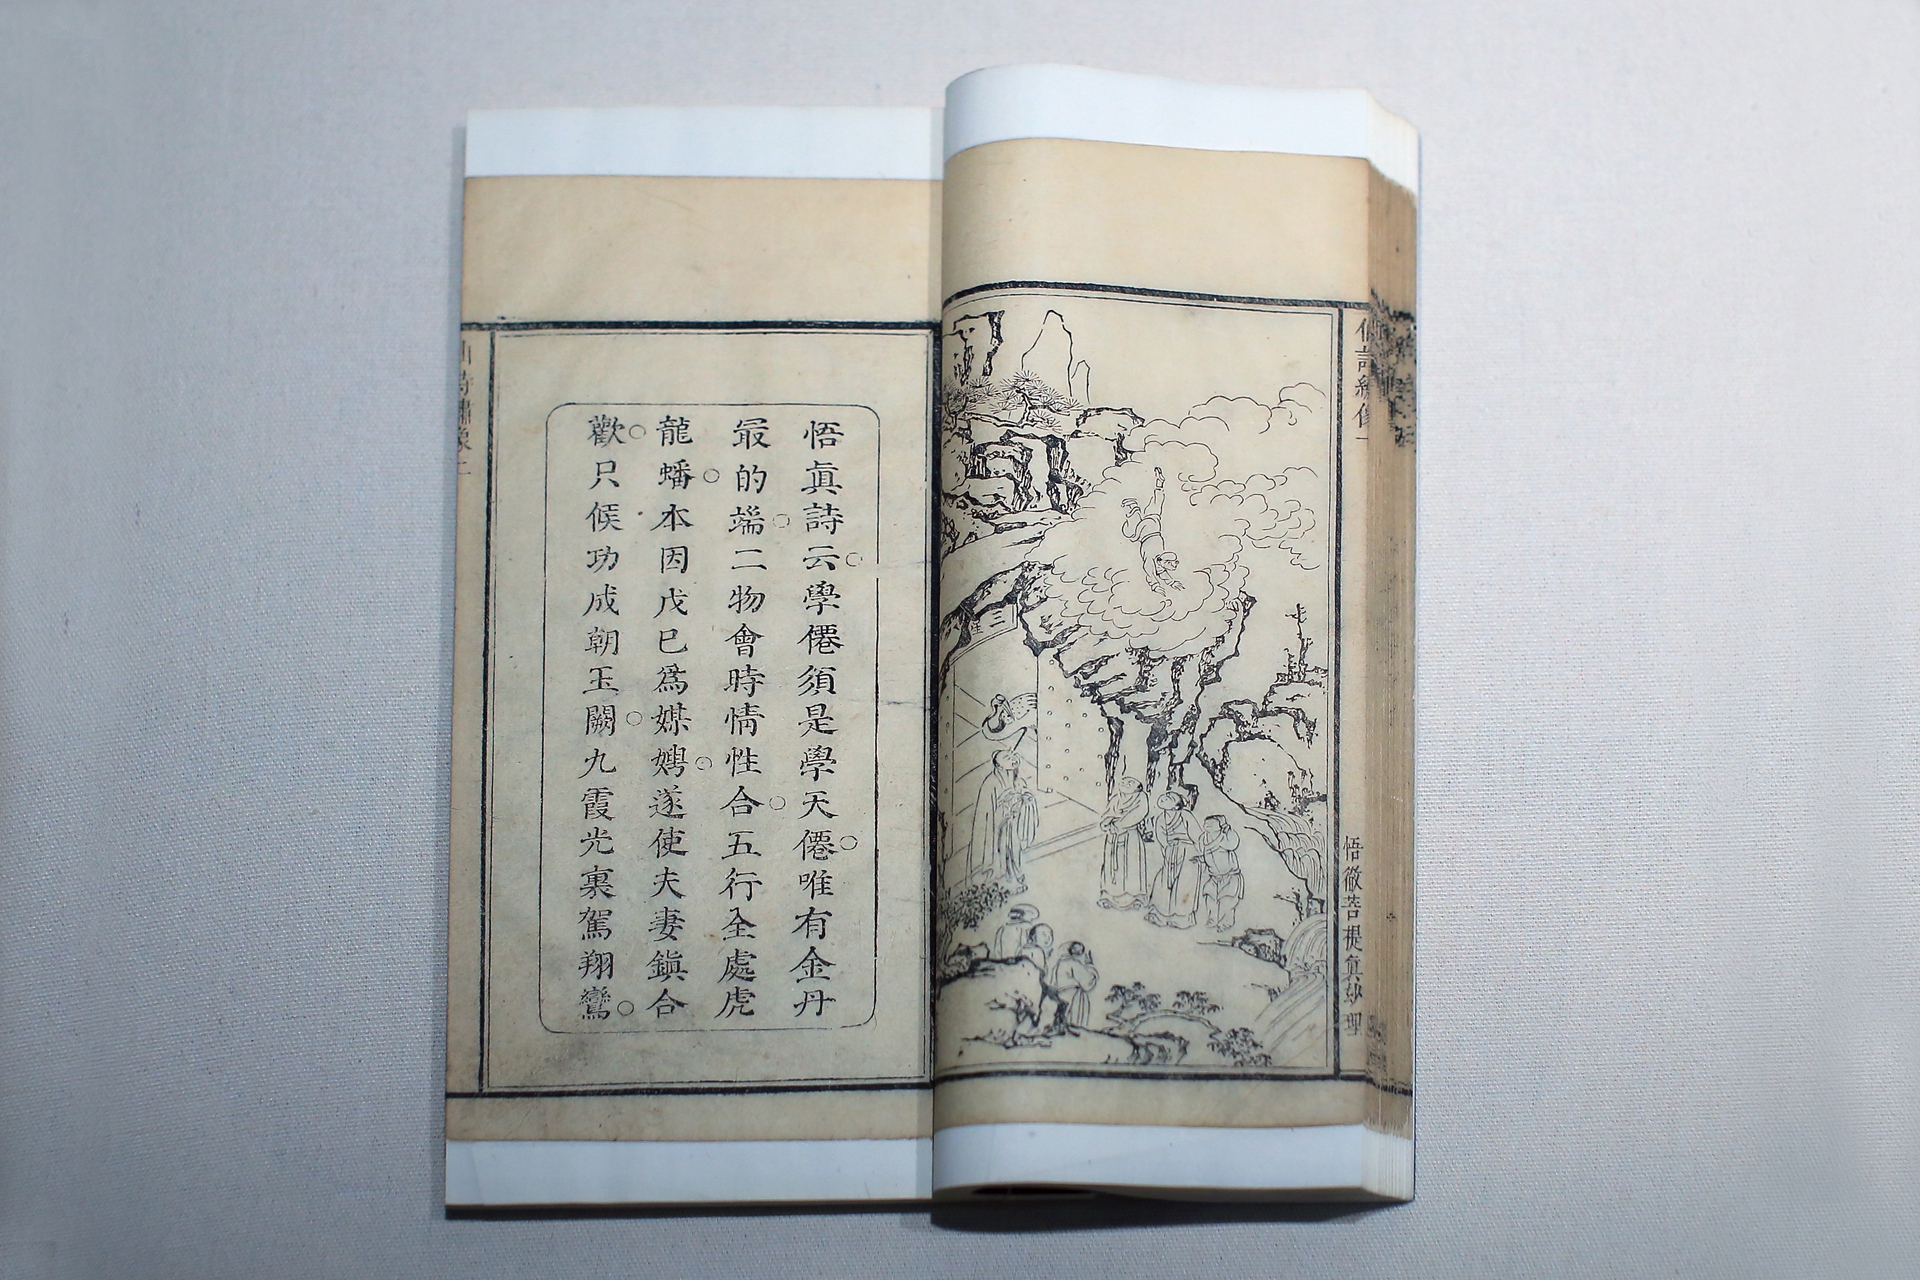 悟徹菩提真妙理
悟眞詩云○學僊須是學天僊○唯有金丹
最的端○二物會時情性合○五行全處虎
龍蟠○本因戊己爲媒娉○遂使夫妻鎭合
歡○只候功成朝玉闕○九霞光裏駕翔鸞○